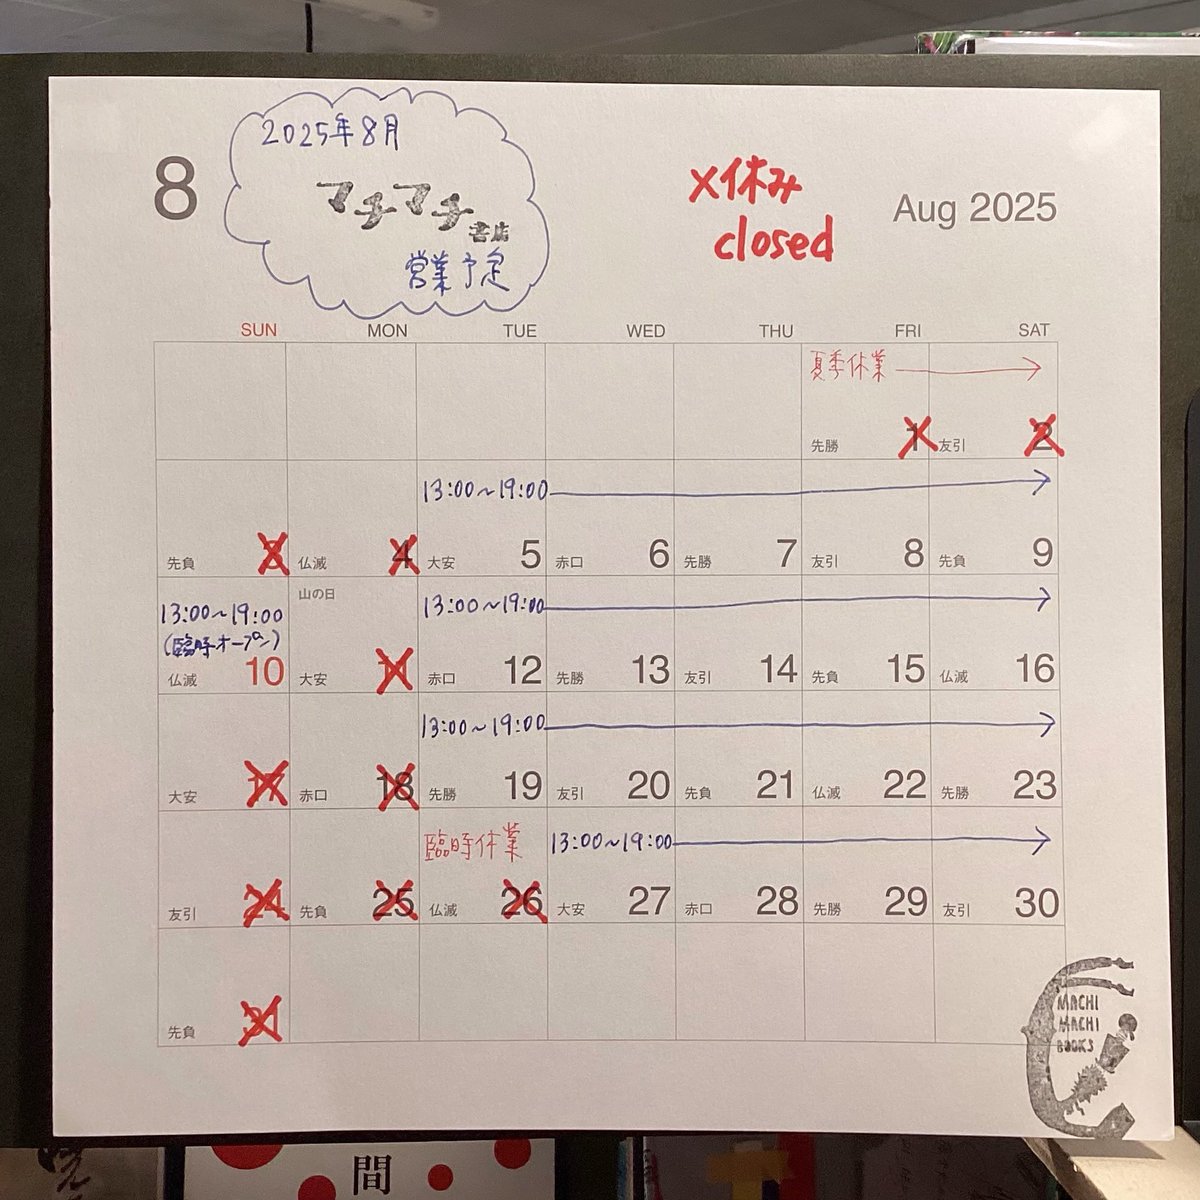 2025年8月
マチマチ書店
営業予定
8
×休み
closed
Aug 2025
SUN MON TUE WED THU FRI SAT
夏季休業
先勝 1 友引 2
13:00~19:00
先負 3 仏滅 4 大安 5 赤口 6 先勝 7 友引 8 先負 9
13:00~19:00 山の日 13:00~19:00
(臨時オープン)
仏滅 10 大安 11 赤口 12 先勝 13 友引 14 先負 15 仏滅 16
13:00~19:00
大安 17 赤口 18 先勝 19 友引 20 先負 21 仏滅 22 先勝 23
臨時休業 13:00~19:00
友引 24 先負 25 仏滅 26 大安 27 赤口 28 先勝 29 友引 30
先負 31
MACHI
MACHI
BOOKS
間